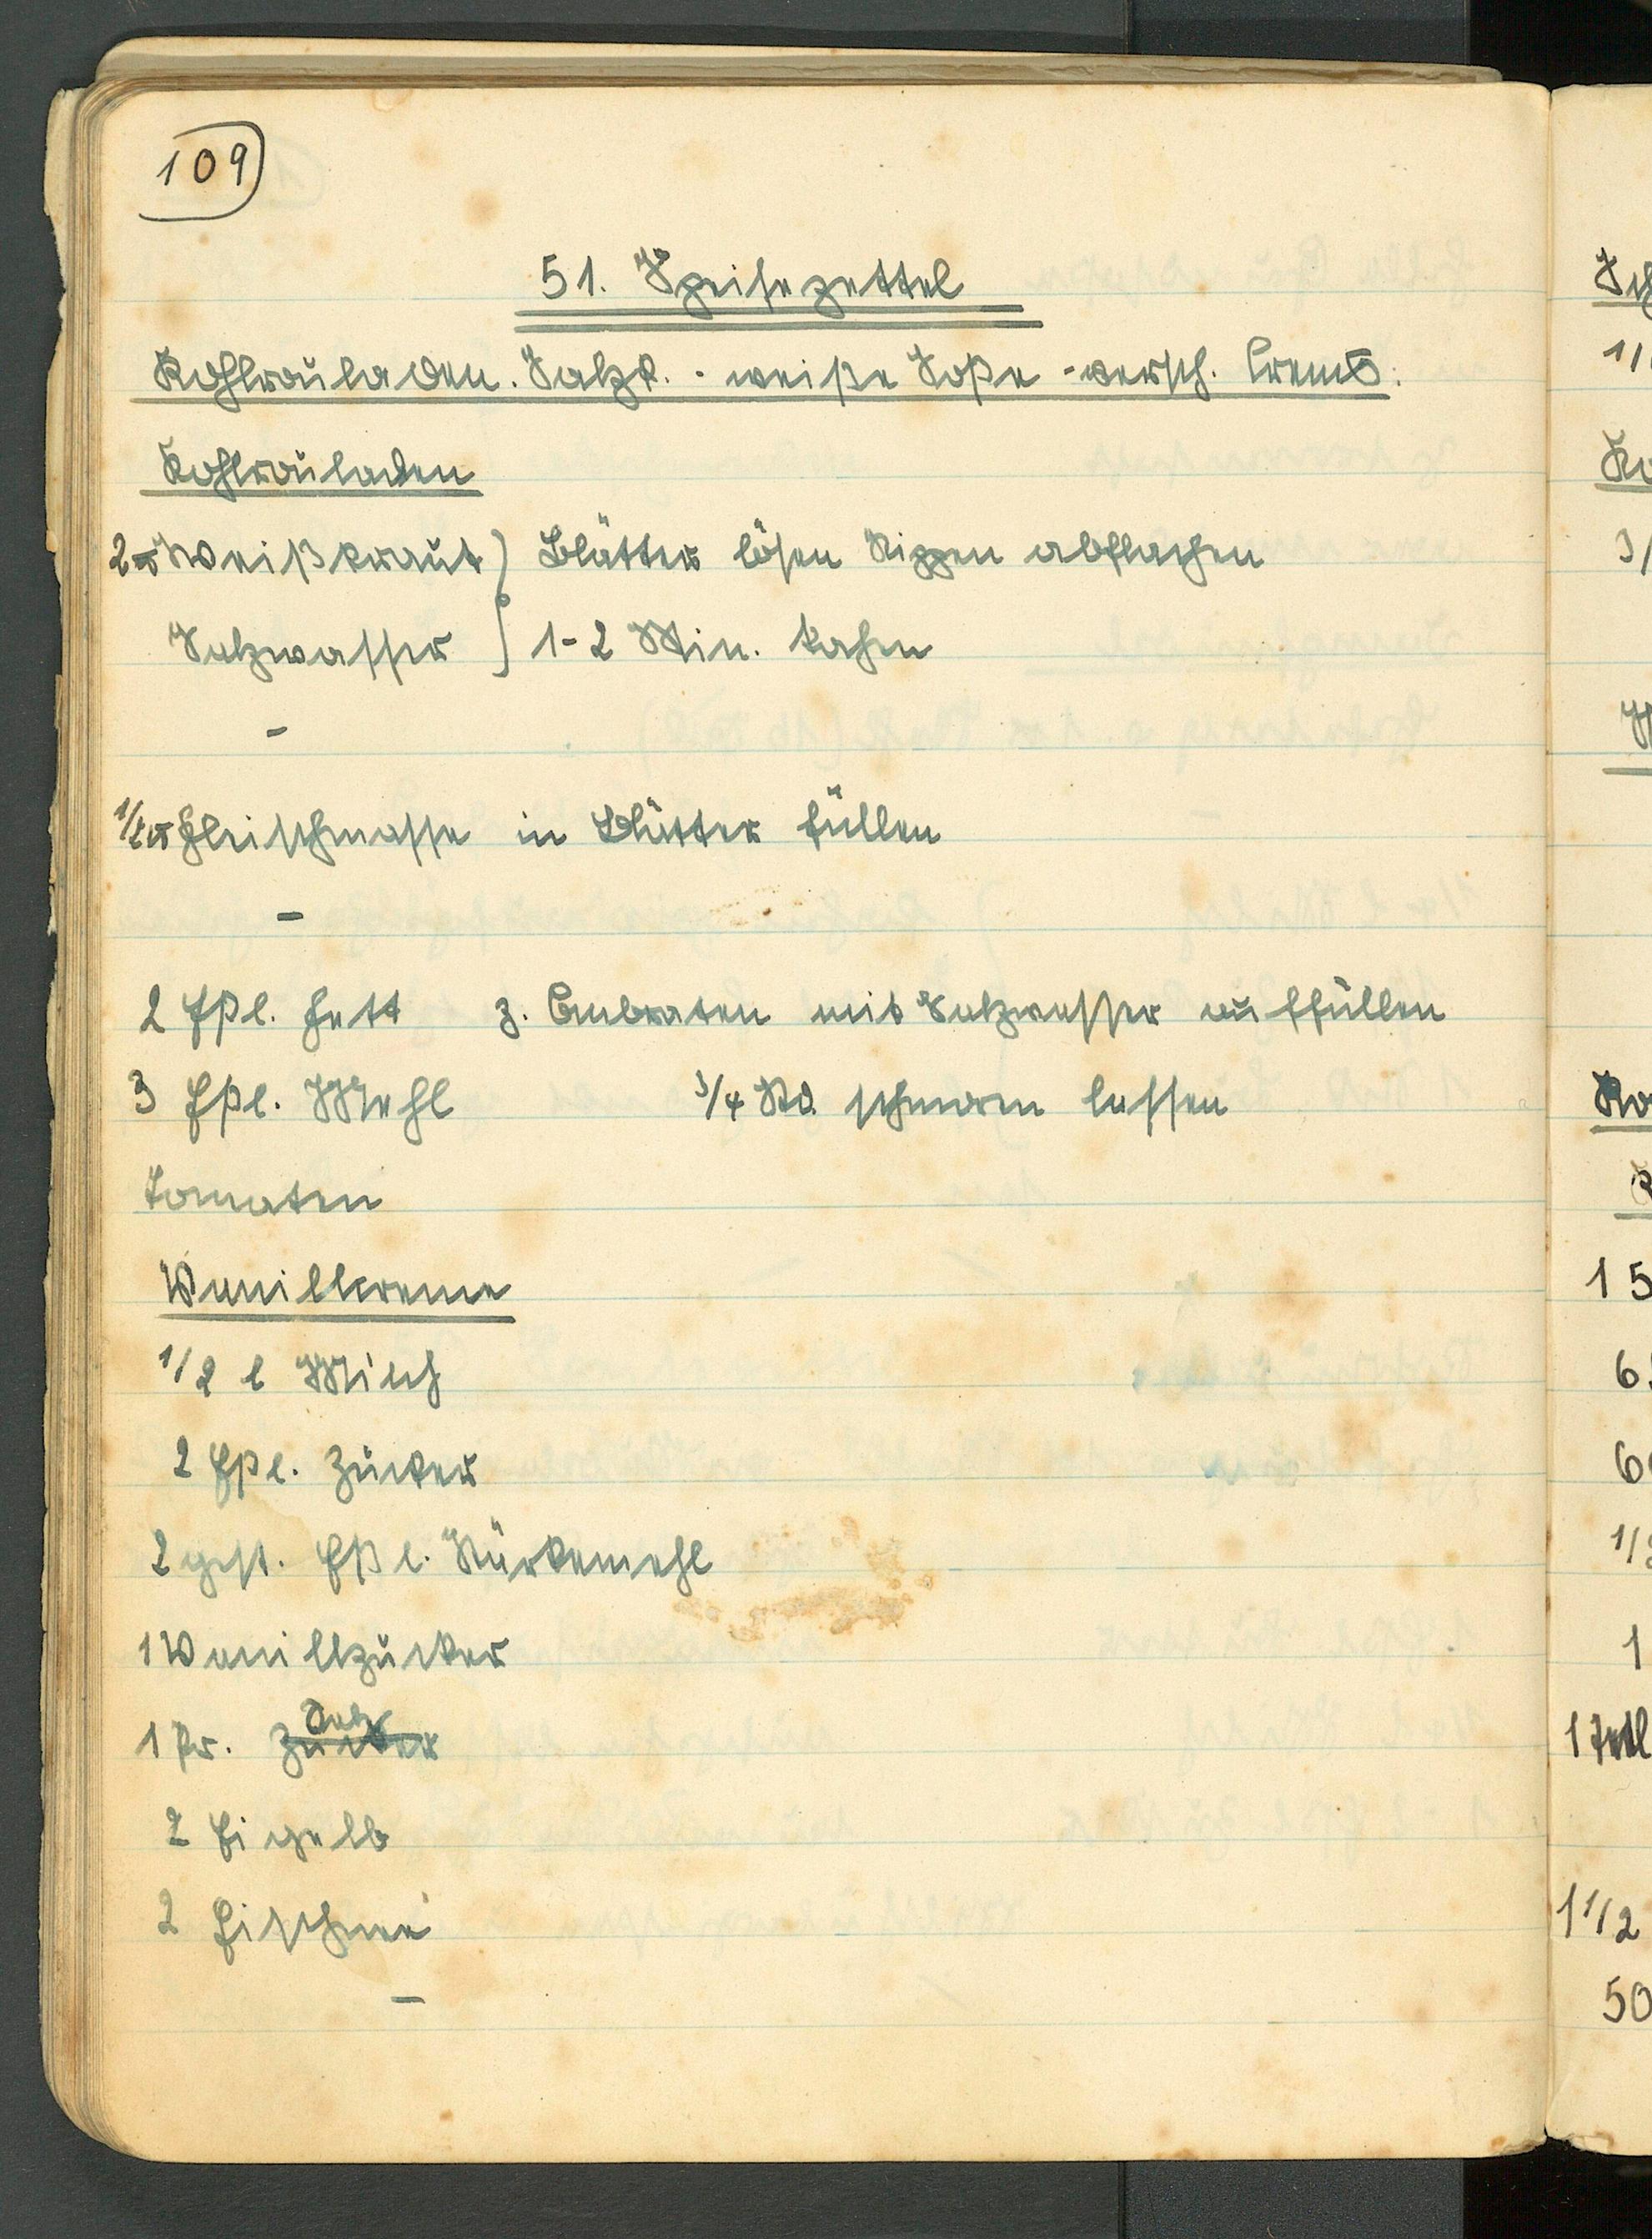 109
51. Speisezettel
Kohlrouladen. Salzk. - weiße Soße - versch. Crems.
Kohlrouladen
2 ℔ Weißkraut } Blätter lösen Rippen abflachen
Salzwasser } 1-2 Min. kochen
-
1/2 ℔ Fleischmasse in Blätter füllen
-
2 Eßl. Fett z. Anbraten mit Salzwasser auffüllen
3 Eßl. Mehl 3/4 Std. schmoren lassen
Tomaten
Vanillcreme
1/2 l Milch
2 Eßl. Zucker
2 gest. Eßl. Stärkemehl
1 Vanillzucker
1 Pr. Zucker Salz
2 Eigelb
2 Eischnee
-